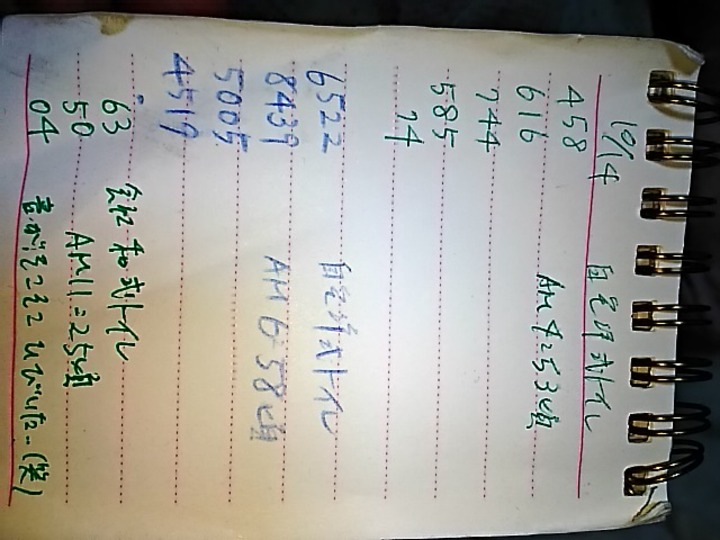 10/14 自宅洋式トイレ
458
616 AM4:53頃
744
585
74
6522 自宅洋式トイレ
8439 AM6:58頃
5005
4519
63 会社和式トイレ
50 AM11:25頃
04 音がそこそこひびいた…(笑)